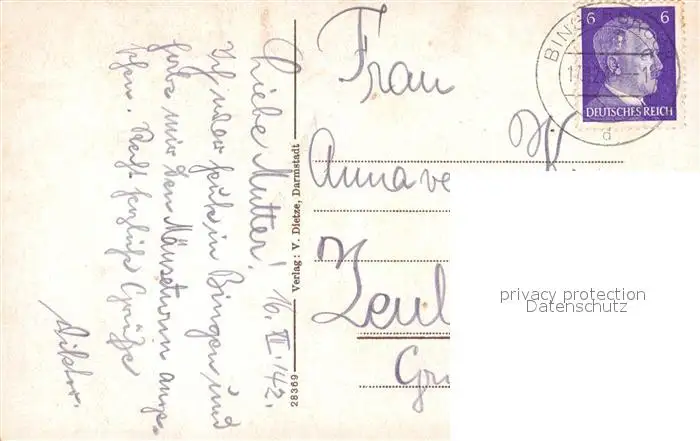 Liebe Mutter! 16. VII. 42.
Ich war heute in Bingen und
habe mir den Mäuseturm ange-
sehen. Recht herzliche Grüße
Viktor.
Verlag: V. Dietze, Darmstadt
28369
Frau
Anna
Zeul
6 6
DEUTSCHES REICH
BING
d
privacy protection
Datenschutz